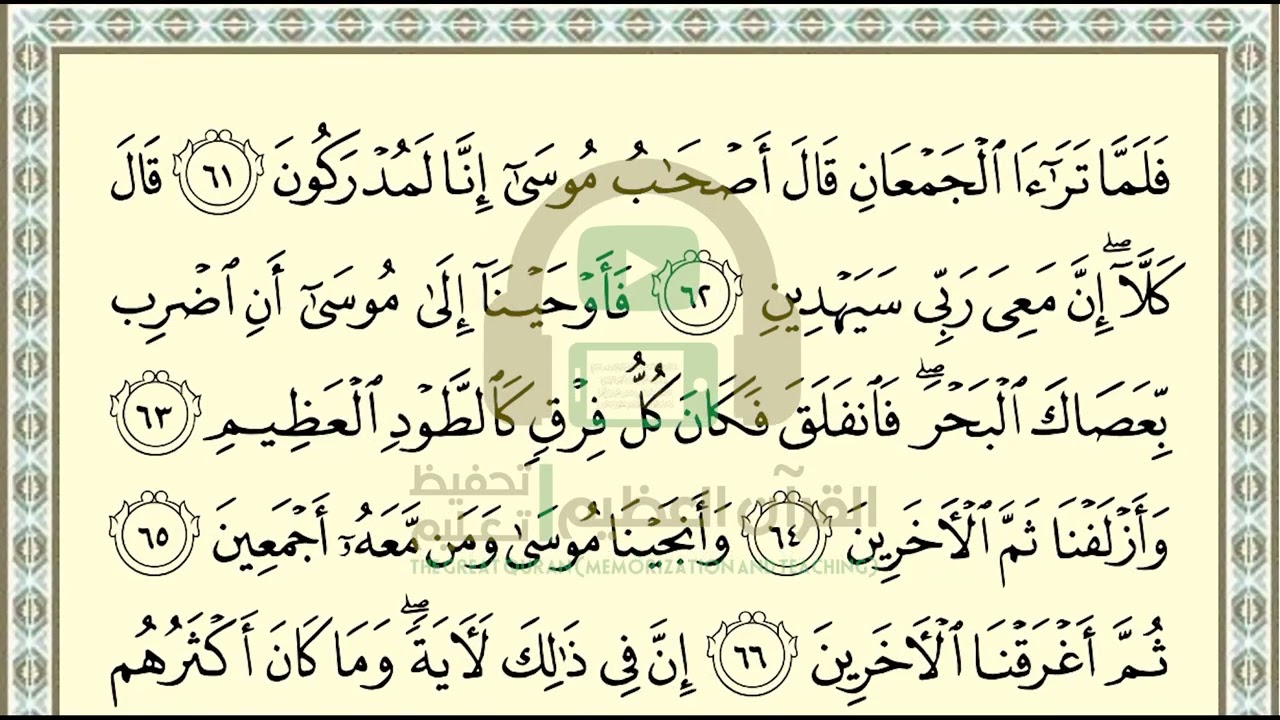 فَلَمَّا تَرَٰٓءَا ٱلْجَمْعَانِ قَالَ أَصْحَٰبُ مُوسَىٰٓ إِنَّا لَمُدْرَكُونَ ٦١ قَالَ
كَلَّآ ۖ إِنَّ مَعِىَ رَبِّى سَيَهْدِينِ ٦٢ فَأَوْحَيْنَآ إِلَىٰ مُوسَىٰٓ أَنِ ٱضْرِب
بِّعَصَاكَ ٱلْبَحْرَ ۖ فَٱنفَلَقَ فَكَانَ كُلُّ فِرْقٍ كَٱلطَّوْدِ ٱلْعَظِيمِ ٦٣
وَأَزْلَفْنَا ثَمَّ ٱلْءَاخَرِينَ ٦٤ وَأَنجَيْنَا مُوسَىٰ وَمَن مَّعَهُۥٓ أَجْمَعِينَ ٦٥
ثُمَّ أَغْرَقْنَا ٱلْءَاخَرِينَ ٦٦ إِنَّ فِى ذَٰلِكَ لَءَايَةً ۖ وَمَا كَانَ أَكْثَرُهُم
القرآن العظيم | تحفيظ تعليم
THE GREAT QURAN (MEMORIZATION AND TEACHING)